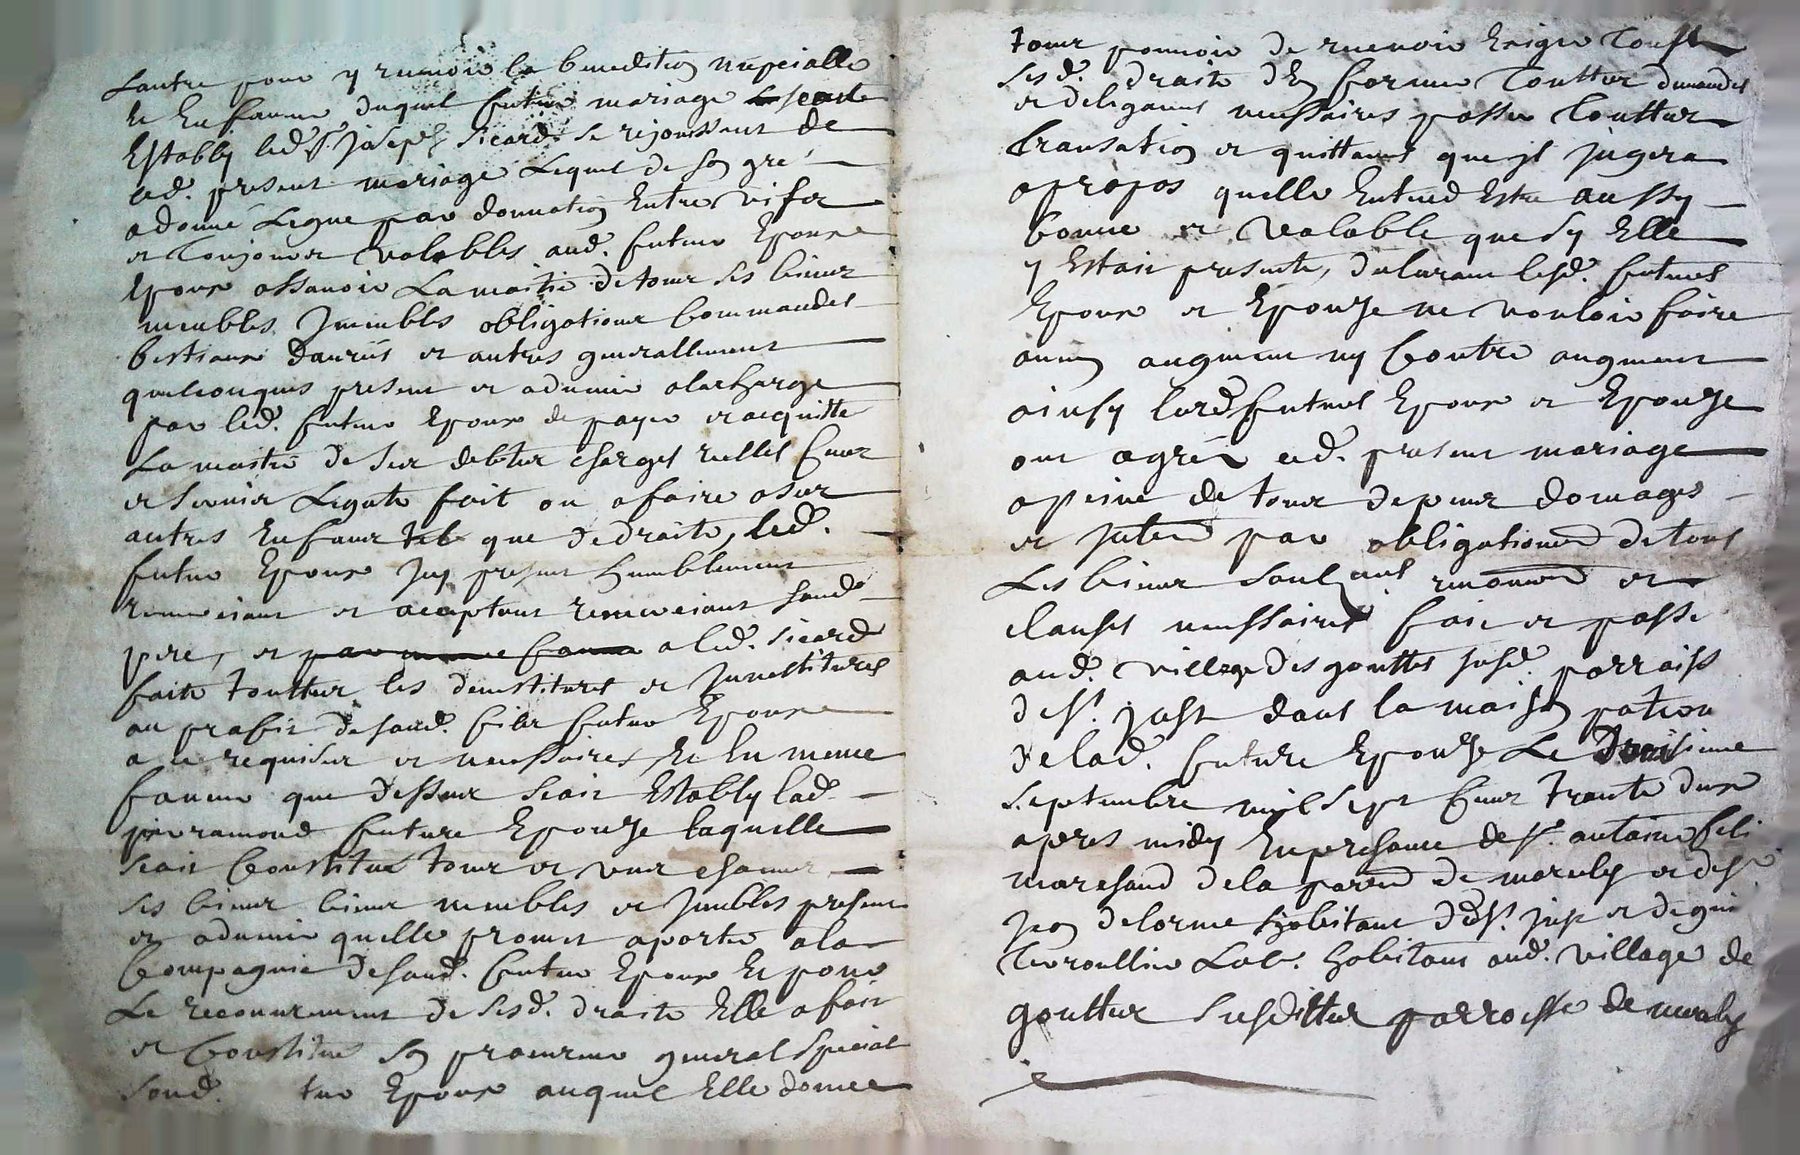 Lautre pour y recevoir la benediction nupcialle
Et En faveur duquel futur mariage
Estably led. Sr. Joseph Sicard Se rejouissant de
ced. present mariage Lequel de son gré
a donné Legué par donnation Entre vifve
et Toujours valables aud. futeur Epoux
Epoux assavoir La moitié de tous ses biens
meubles Jmeubles obligations Commandes
bestiaux danrés et autres generallement
quelconques present et advenir a la charge
par led. futeur Epoux de payer et acquitté
La moitié de ses debtes charges reelles Cens
et Servis Legats fait ou a faire a ses
autres Enfans tels que de droits, led.
futeur Epoux Jcy present humblement
remerciant et aceptant remerciant sond.
pere, et a led. Sicard
faite touttes les demistitures et Jnvestitures
au profit de sond. fils futeur Epoux
a ce requises et necessaires Et En meme
faveur que dessus Seait Estably lad.
ramond future Epouze laquelle
Seait Constitué tous et uns chacuns
ses biens biens meubles et Jmbles present
et advenir quelle promet aporter a la
Compagnie de sond. futeur Epoux Et pour
Le recouvrement de sesd. droits Elle a fait
et Constitué son procureur general special
sond. Epoux auquel Elle donne
tour pouvoir de recevoir Exiger tous
sesd. droits den former Touttes demandes
et deligances necessaires passer Touttes
transation et quittances que jl jugera
apropos quelle Entend Estre aussy
bonne et valable que sy Elle
y Estait presente, declarant lesd. futeurs
Epoux et Epouze ne vouloir faire
aucun augment ny Contre augment
ainsy lesd. futeurs Epoux et Epouze
ont agréé ced. present mariage
a peine de tous depens domages
et Jnterd par obligationed de tous
Les biens Soubzmis renonced et
clauses necessaires fait et passé
aud. village des gouttes susd. parroisse
de St. Just dans la maison
de lad. future Epouze Le
Septembre mil sept Cens trante deux
apres midy En presance de Sr. antoine
marchand de la parred de maruly et de Sr.
Jean delorme habitant dud. St. Just et de
Lab. habitant aud. village de
gouttes Susdittes parroisse de